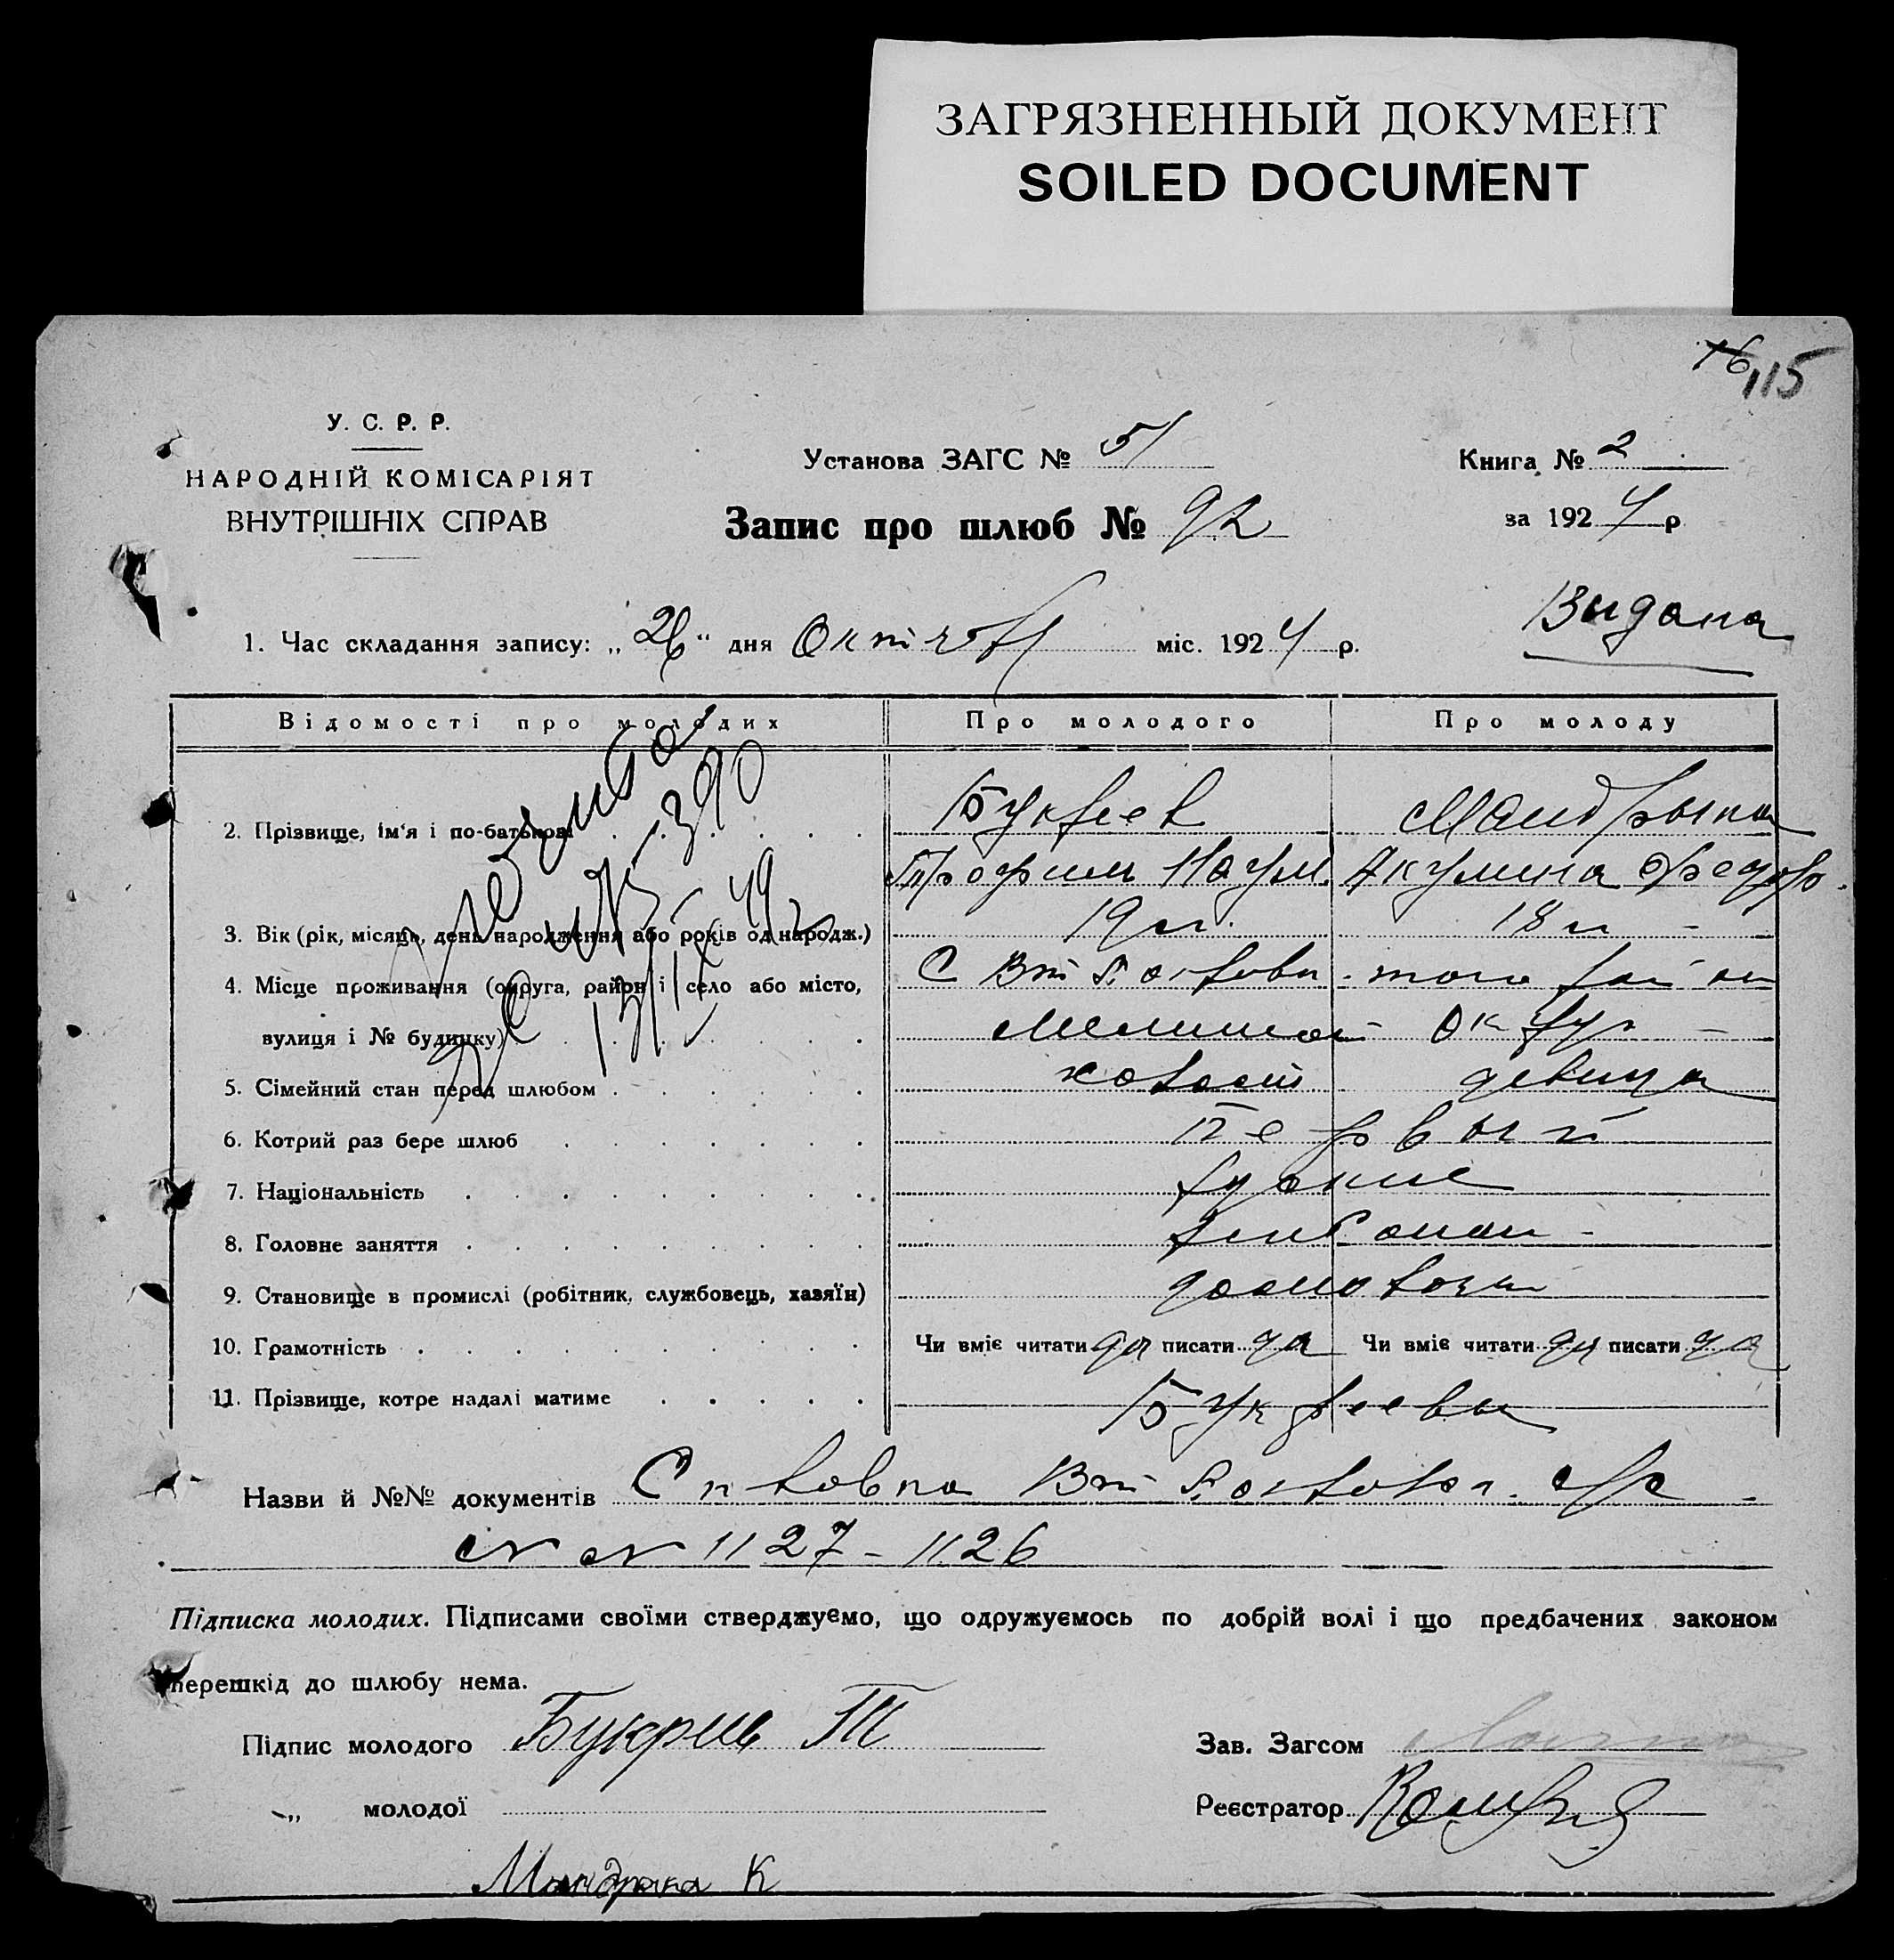 ЗАГРЯЗНЕННЫЙ ДОКУМЕНТ
SOILED DOCUMENT
16 115
У. С. Р. Р.
НАРОДНІЙ КОМІСАРІЯТ
ВНУТРІШНІХ СПРАВ
Установа ЗАГС № 51
Книга № 2
Запис про шлюб № 92
за 1924 р
Видана
1. Час складання запису: „26“ дня Октября міс. 1924 р.
Відомості про молодих Про молодого Про молоду
2. Прізвище, ім'я і по-батькові Букреев Мандрыка
Трофим Наум. Акулина Федор.
3. Вік (рік, місяць, день народження або років од народж.) 19 л. 18 л
4. Місце проживання (округа, район і село або місто,
вулиця і № будинку) Мелитоп Округ
5. Сімейний стан перед шлюбом холост девица
6. Котрий раз бере шлюб первый
7. Національність руские
8. Головне заняття
9. Становище в промислі (робітник, службовець, хазяїн)
10. Грамотність Чи вміє читати да писати да Чи вміє читати да писати да
11. Прізвище, котре надалі матиме Букреевы
Назви й №№ документів
№ № 1127 - 1126
Підписка молодих. Підписами своїми стверджуємо, що одружуємось по добрій волі і що предбачених законом
перешкід до шлюбу нема.
Підпис молодого Букрив Т
Зав. Загсом
„ молодої
Реєстратор
Мандрика К